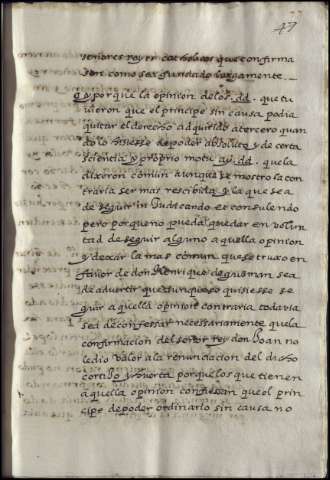 47
señores reyes catholicos que confirma
ron. como sea fundado largamente.
y porque la opinion de los. dd. que tu
vieron que el principe sin causa podia
quitar el derecho adquirido a tercero quan
do lo hisiese de poder absoluto y de certa
sciencia y proprio motu ay. dd. que la
dixeron comun aunque se mostro la con
traria ser mas rescibida y la que sea
de seguir in Judicando et consulendo
pero porque no pueda quedar en volun
tad de seguir alguno aquella opinion
y dexar la mas comun que se truxo en
favor de don Henrique de guzman sea
de advertir que aunque se quisiese se
guir aquella opinion contraria todavia
sea de confessar necessariamente que la
confirmacion del señor rey don Joan no
le dio valor a la renunciacion del dicho
cortijo y huerta porque los que tienen
aquella opinion confiesan que el prin
cipe de poder ordinario sin causa no